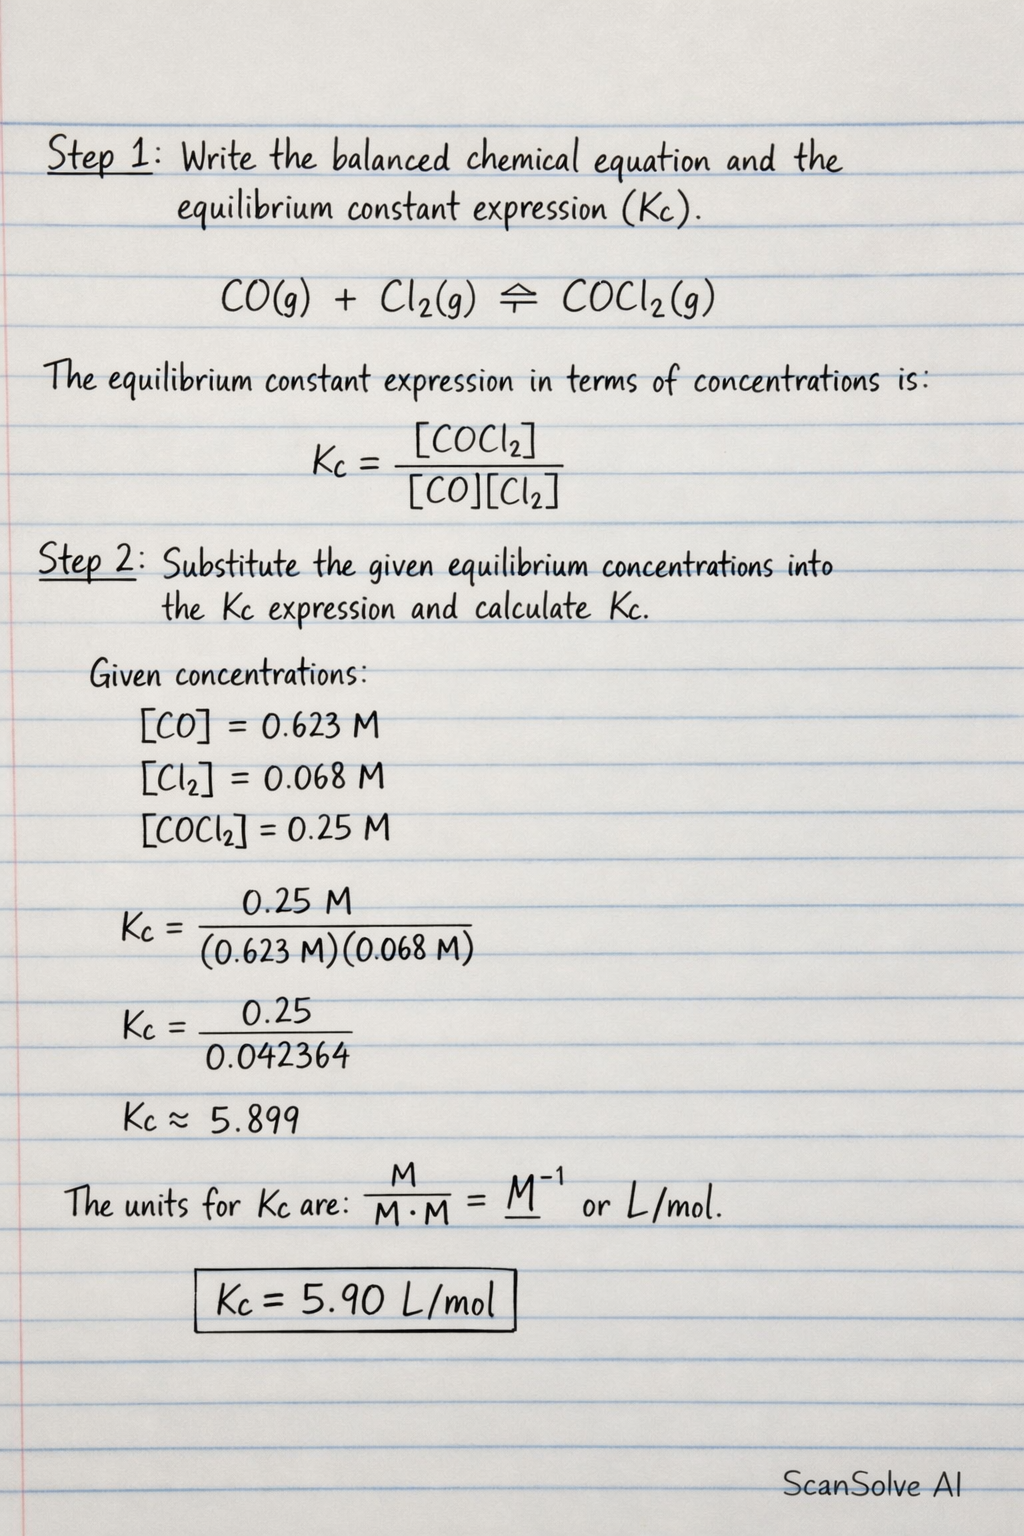 Step 1: Write the balanced chemical equation and the
equilibrium constant expression (Kc).
CO(g) + Cl₂(g) ⇌ COCl₂(g)
The equilibrium constant expression in terms of concentrations is:
Kc = [COCl₂] / [CO][Cl₂]
Step 2: Substitute the given equilibrium concentrations into
the Kc expression and calculate Kc.
Given concentrations:
[CO] = 0.623 M
[Cl₂] = 0.068 M
[COCl₂] = 0.25 M
Kc = 0.25 M / (0.623 M)(0.068 M)
Kc = 0.25 / 0.042364
Kc ≈ 5.899
The units for Kc are: M / M · M = M⁻¹ or L/mol.
Kc = 5.90 L/mol
ScanSolve AI